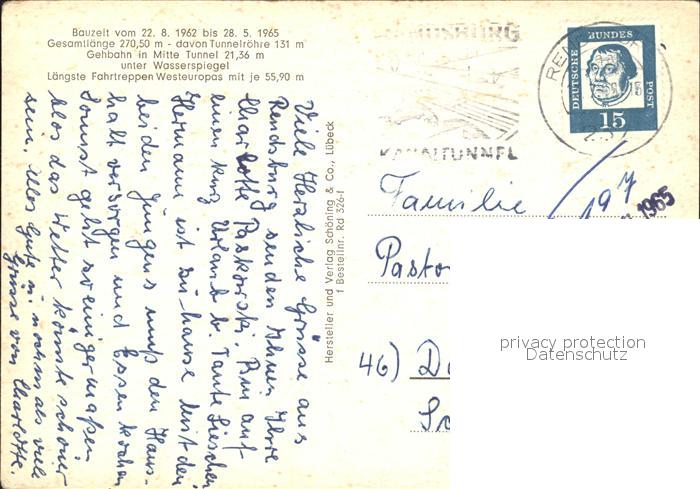 Bauzeit vom 22. 8. 1962 bis 28. 5. 1965
Gesamtlänge 270,50 m - davon Tunnelröhre 131 m
Gehbahn in Mitte Tunnel 21,36 m
unter Wasserspiegel
Längste Fahrtreppen Westeuropas mit je 55,90 m
Viele Herzliche Grüsse aus
Rendsburg senden Ihnen Ihre
Charlotte Paskowski. Bin auf
einen kurz Urlaub b. Tante Lieschen
Hermann ist zu hause mit den
beiden Jungens muß den Haus-
halt versorgen und Essen kochen
Sonst geht so einigermaßen
blos das Wetter könnte schöner
sein. Alles Gute u. nochmals viele
Grüsse von Charlotte.
Hersteller und Verlag Schöning & Co., Lübeck
f Bestellnr. Rd 326-1
RENDSBURG
KANALTUNNEL
DEUTSCHE BUNDES POST
15
1965
Familie
Pasto
46) D
privacy protection
Datenschutz